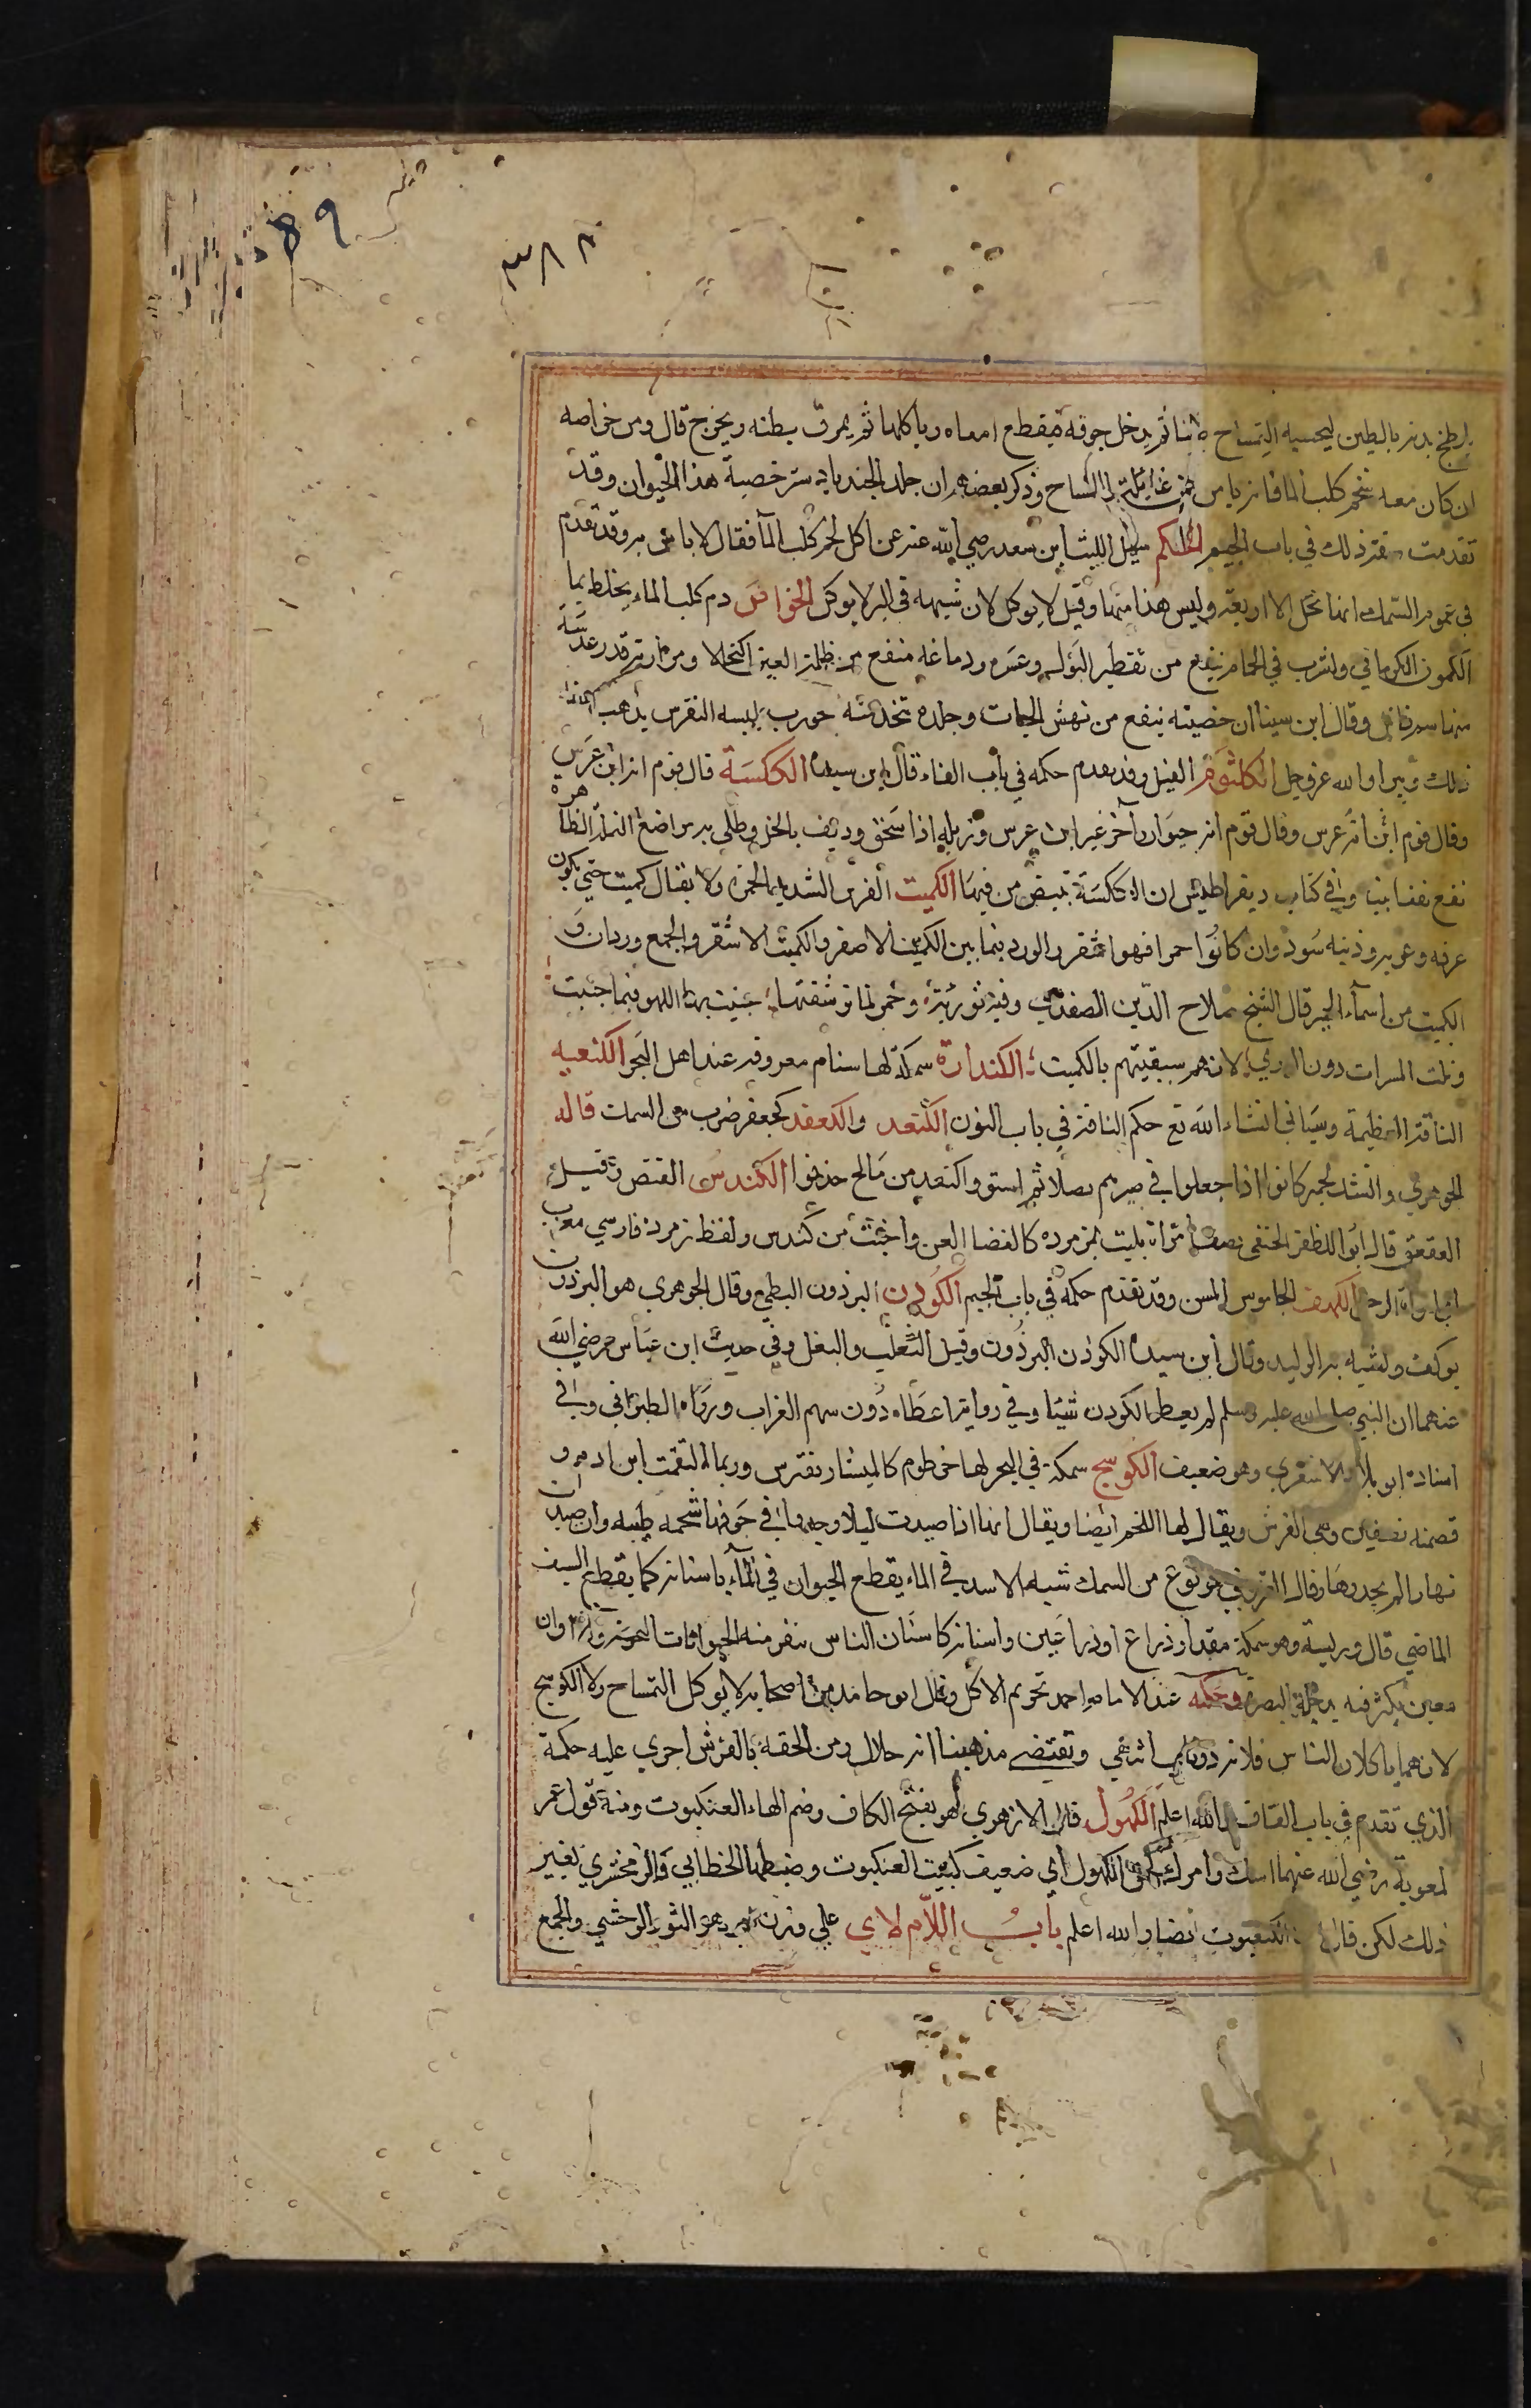 ٥٨٩
٣٨٨
يلطخ بدنه بالطين ليحسبه التمساح طينا ثم يدخل جوفه فيقطع امعاه وياكلها ثم يمرق بطنه ويخرج قال ومن خواصه
ان كان معه شحم كلب الما فانه يامن من غائلة التمساح وذكر بعضهم ان جلد الجندبادستر خصية هذا الحيوان وقد
تقدمت صفة ذلك في باب الجيم الحكم سيل الليث ابن سعد رضي الله عنه عن اكل لحم كلب المآ فقال لا باس به وقد تقدم
في عموم السمك انها تحل الا اربعة وليس هذا منها وقيل لا يوكل لان شبهه في البر لا يوكل الخواص دم كلب الماء يخلط بما
الكمون الكرماني ولشرب في الحمام ينفع من تقطير البول وعسره ودماغه منفع من ظلمة العين اكتحالا ومرارته قدر عدسة
منها سم قاتل وقال ابن سينا ان خصيته ينفع من نهش الحيات وجلده تتخذ منه جورب يلبسه النقرس يذهب
ذلك ويبرا والله عز وجل الكلثوم الفيل وقد تقدم حكمه في باب الفاء قال ابن سيده الكلكسة قال قوم انه ابن عرس
وقال قوم ابن انه عرس وقال قوم انه حيوان آخر غير ابن عرس وزبله اذا سحق وديف بالخل وطلي به مواضع النملة الظاهره
نفع نفعا بينا وفي كتاب ديقراطيس ان الكلكسة تبيض من فيها الكميت الفرس الشديد الحمرة ولا يقال كميت حتى يكون
عرفه وعريه وذنبه سود وان كانوا حمرا فهو اشقر والورد فيما بين الكميت الاصفر والكميت الاشقر والجمع وردان و
الكميت من اسمآء الخمر قال الشيخ صلاح الدين الصفدي وفيه تورية وخمر لما ترشفتها جنيت بها اللهو فيما جنيت
ونلت المسرات دون الوري لانهم سبقيتهم بالكميت الكندارة سمكة لها سنام معروفة عند اهل البحر الكنعبه
الناقة العظيمة وسياتي انشاء الله تع حكم الناقة في باب النون الكنعد والكعفد كجعفر ضرب من السمك قاله
الجوهري وانشد لجرير كانوا اذا جعلوا في صيرهم بصلا ثم استووا كنعدا من مالح حذفوا الكندس القنص وقيل
العقعق قال ابو المظفر الحنفي يصف امراة بليت بزمرده كالعصا العن واخبث من كندس ولفظ زمرد فارسي معرب
الكهف الجاموس المسن وقد تقدم حكمه في باب الجيم الكودن البرذون البطي وقال الجوهري هو البرذون
يوكف ولشبه به البليد وقال ابن سيده الكودن البرذون وقيل الثعلب والبغل وفي حديث ابن عباس رضي الله
عنهما ان النبي صلى الله عليه وسلم لم يعط الكودن شيئا وفي رواية اعطاه دون سهم العراب ورواه الطبراني وفي
اسناده ابو بلال الاشعري وهو ضعيف الكوسج سمكة في البحر لها خرطوم كالمنشار تفترس وربما التقمت ابن ادم و
قصمته نصفين وهي القرش ويقال لها اللخم ايضا ويقال انها اذا صيدت ليلا وجدوا في جوفها شحمه طيبه وان صيدت
نهارا لم يجدوها وقال القزويني هو نوع من السمك شبه الاسد في الماء يقطع الحيوان في المآء باسنانه كما يقطع السيف
الماضي قال ورايته وهو سمكة مقدار ذراع او ذراعين واسنانه كاسنان الناس تنفر منه الحيوانات البحريه وله اوان
معين يكثر فيه بدجلة البصرة وحكمه عند الامام احمد تحريم الاكل وقال ابو حامد من اصحابه لا يوكل التمساح ولا الكوسج
لانهما ياكلان الناس فلانه ذو ناب انتهى وتقتضى مذهبنا انه حلال ومن الحقه بالقرش اجري عليه حكمه
الذي تقدم في باب القاف والله اعلم الكهول قال الازهري هو بفتح الكاف وضم الهاء العنكبوت ومنه قول عمر
لمعوية رضي الله عنهما اسك وامرك كحق الكهول اي ضعيف كبيت العنكبوت وضبطها الخطابي والزمخشري بغير
ذلك لكن قال العنكبوت ايضا والله اعلم باب اللام لاي علي وزن وهو الثور الوحشي والجمع